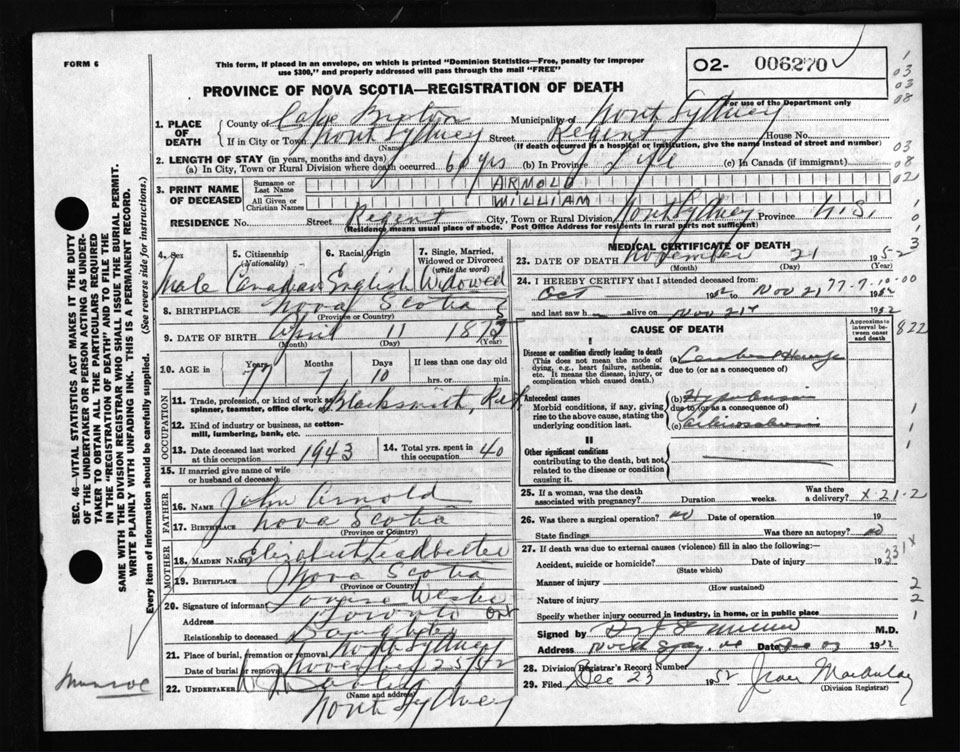 FORM 6
This form, if placed in an envelope, on which is printed "Dominion Statistics—Free, penalty for improper
use $300," and properly addressed will pass through the mail "FREE"
O2- 006270
For use of the Department only
PROVINCE OF NOVA SCOTIA—REGISTRATION OF DEATH
1. PLACE OF DEATH
County of Cape Breton Municipality of North Sydney
If in City or Town North Sydney Street Regent House No.
(Name) (If death occurred in a hospital or institution, give the name instead of street and number)
2. LENGTH OF STAY (in years, months and days)
(a) In City, Town or Rural Division where death occurred 60 yrs (b) In Province Life (c) In Canada (if immigrant)
3. PRINT NAME OF DECEASED
Surname or Last Name ARNOLD
All Given or Christian Names WILLIAM
RESIDENCE No. Street Regent City, Town or Rural Division North Sydney Province N.S.
(Residence means usual place of abode. Post Office Address for residents in rural parts not sufficient)
4. Sex Male
5. Citizenship (Nationality) Canadian
6. Racial Origin English
7. Single, Married, Widowed or Divorced (write the word) Widowed
8. BIRTHPLACE Nova Scotia
(Province or Country)
9. DATE OF BIRTH April 11
(Month) (Day) (Year)
10. AGE in Years Months Days If less than one day old
77 7 10 hrs. or min.
OCCUPATION
11. Trade, profession, or kind of work as spinner, teamster, office clerk, etc. Blacksmith, Ret
12. Kind of industry or business, as cotton-mill, lumbering, bank, etc.
13. Date deceased last worked at this occupation 1943
14. Total yrs. spent in this occupation 40
15. If married give name of wife or husband of deceased
FATHER
16. Name John Arnold
17. Birthplace Nova Scotia
(Province or Country)
MOTHER
18. Maiden Name Elizabeth Leadbetter
19. Birthplace Nova Scotia
(Province or Country)
20. Signature of informant Louise
Address Toronto Ont
Relationship to deceased Daughter
21. Place of burial, cremation or removal North Sydney
Date of burial or removal November 25/52
22. Undertaker
(Name and address)
North Sydney
MEDICAL CERTIFICATE OF DEATH
23. DATE OF DEATH November 21 1952
(Month) (Day) (Year)
24. I HEREBY CERTIFY that I attended deceased from:
Oct 1952 to Nov 21 1952
77-7-10-00
and last saw h alive on Nov 21st 1952
CAUSE OF DEATH
Approximate interval between onset and death
822
I
Disease or condition directly leading to death
(This does not mean the mode of dying, e.g., heart failure, asthenia, etc. It means the disease, injury, or complication which caused death.)
(a)
due to (or as a consequence of)
Antecedent causes
Morbid conditions, if any, giving rise to the above cause, stating the underlying condition last.
(b)
due to (or as a consequence of)
(c)
II
Other significant conditions
contributing to the death, but not related to the disease or condition causing it.
25. If a woman, was the death associated with pregnancy? Duration weeks. Was there a delivery? X-21-2
26. Was there a surgical operation? no Date of operation 19
State findings Was there an autopsy? no
27. If death was due to external causes (violence) fill in also the following:—
Accident, suicide or homicide? Date of injury 19 331X
(State which)
Manner of injury
(How sustained)
Nature of injury
Specify whether injury occurred in industry, in home, or in public place
Signed by M.D.
Address Date 1952
28. Division Registrar's Record Number
29. Filed Dec 23 1952 Jean
(Division Registrar)
SEC. 46—VITAL STATISTICS ACT MAKES IT THE DUTY
OF THE UNDERTAKER OR PERSON ACTING AS UNDER-
TAKER TO OBTAIN ALL THE PARTICULARS REQUIRED
IN THE "REGISTRATION OF DEATH" AND TO FILE THE
SAME WITH THE DIVISION REGISTRAR WHO SHALL ISSUE THE BURIAL PERMIT.
WRITE PLAINLY WITH UNFADING INK. THIS IS A PERMANENT RECORD.
Every item of information should be carefully supplied. (See reverse side for instructions.)
Munroe